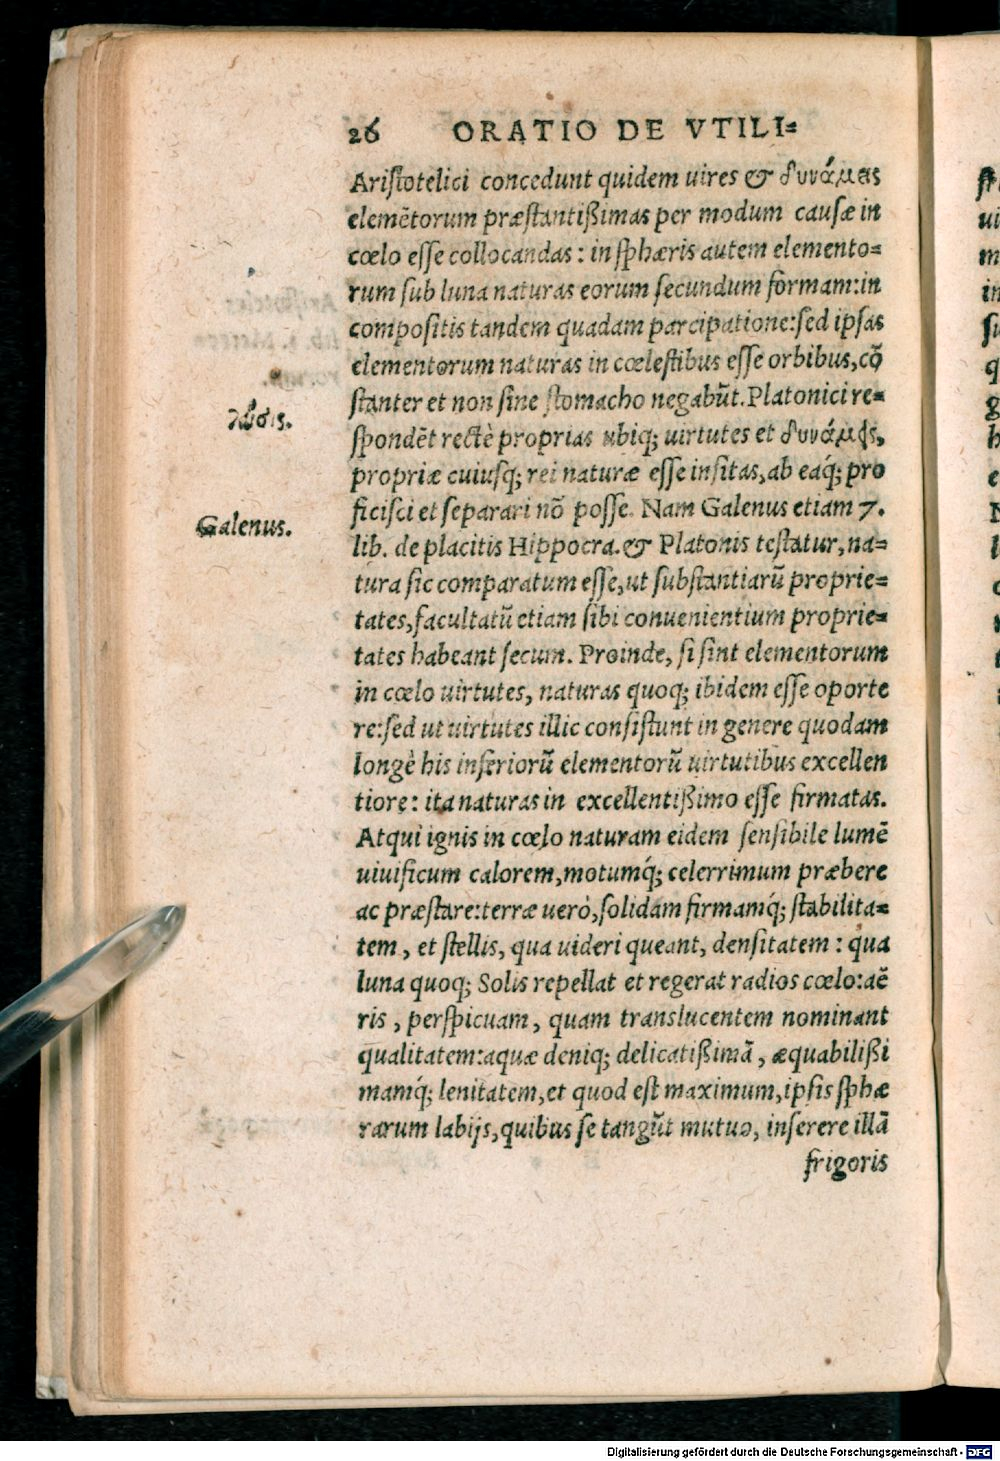 26 ORATIO DE VTILI=
Aristotelici concedunt quidem uires & δυνάμεις
elemētorum præstantißimas per modum causæ in
cœlo esse collocandas: in sphæris autem elemento=
rum sub luna naturas eorum secundum formam: in
compositis tandem quadam parcipatione: sed ipsas
elementorum naturas in cœlestibus esse orbibus, cō
stanter et non sine stomacho negabūt. Platonici re=
λύσις.
spondēt rectè proprias ubiq; uirtutes et δυνάμεις,
propriæ cuiusq; rei naturæ esse insitas, ab eaq́; pro
ficisci et separari nō posse. Nam Galenus etiam 7.
Galenus.
lib. de placitis Hippocra. & Platonis testatur, na=
tura sic comparatum esse, ut substantiarū proprie=
tates, facultatū etiam sibi conuenientium proprie=
tates habeant secum. Proinde, si sint elementorum
in cœlo uirtutes, naturas quoq; ibidem esse oporte
re: sed ut uirtutes illic consistunt in genere quodam
longè his inferiorū elementorū uirtutibus excellen
tiore: ita naturas in excellentißimo esse firmatas.
Atqui ignis in cœlo naturam eidem sensibile lumē
uiuificum calorem, motumq́; celerrimum præbere
ac præstare: terræ uerò, solidam firmamq́; stabilita=
tem, et stellis, qua uideri queant, densitatem: qua
luna quoq; Solis repellat et regerat radios cœlo: aë
ris, perspicuam, quam translucentem nominant
qualitatem: aquæ deniq; delicatißimā, æquabilißi
mamq́; lenitatem, et quod est maximum, ipsis sphæ
rarum labijs, quibus se tangūt mutuo, inserere illā
frigoris
Digitalisierung gefördert durch die Deutsche Forschungsgemeinschaft - DFG